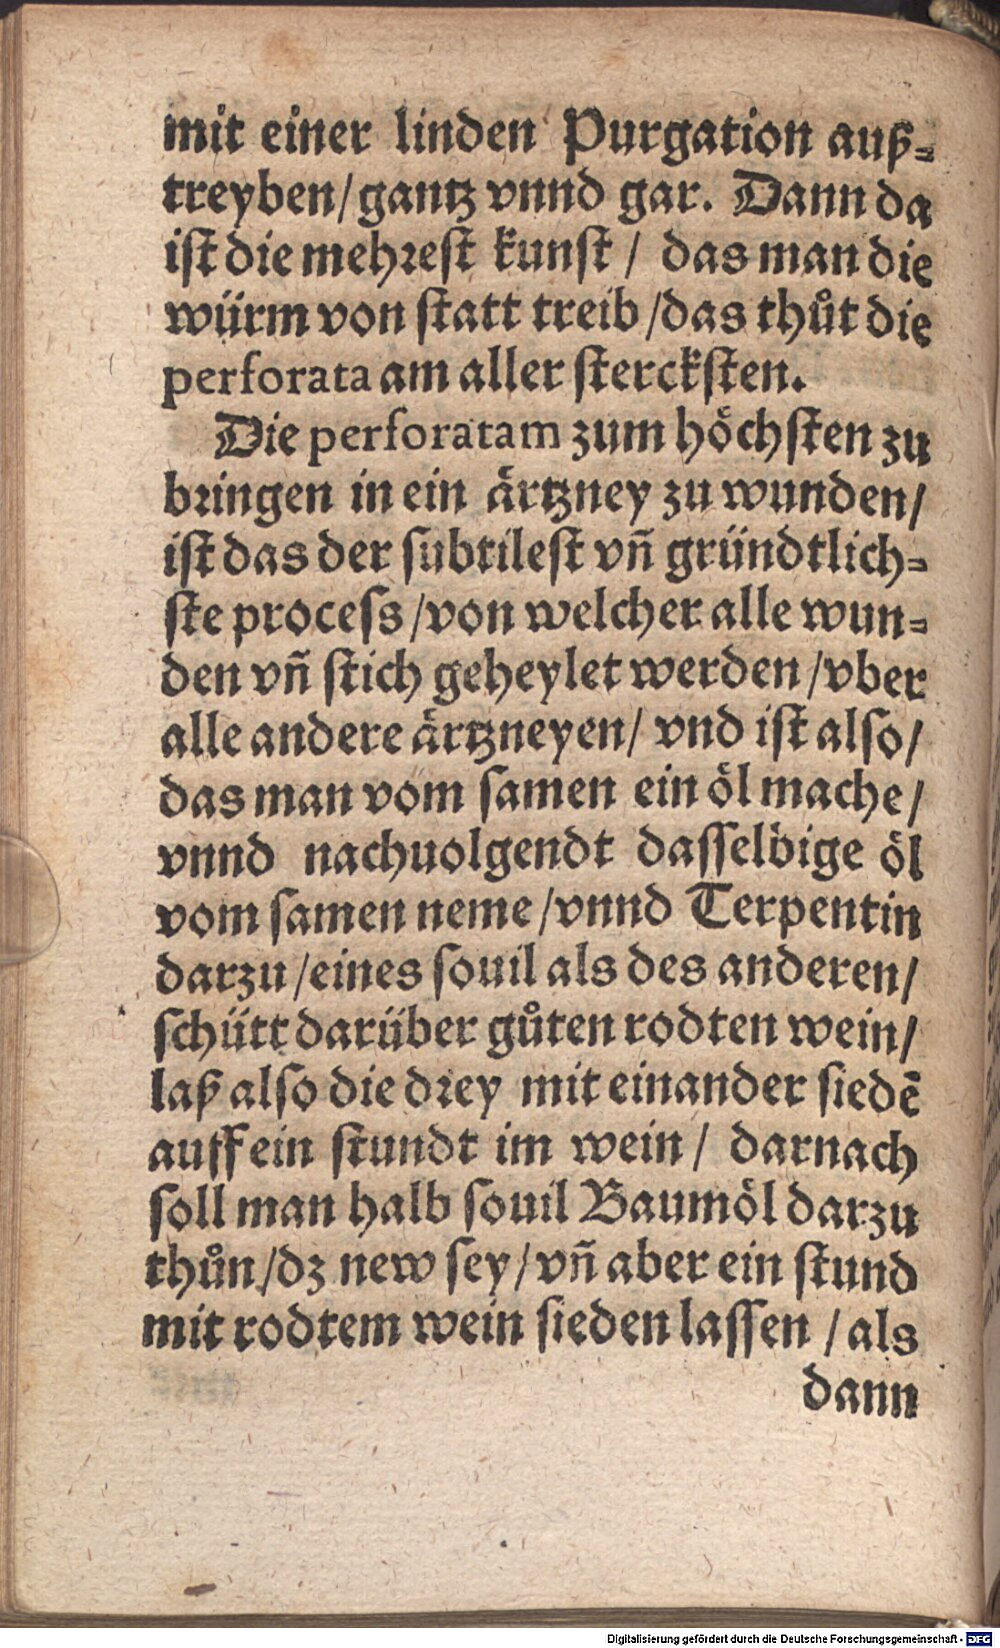 mit einer linden Purgation auß⸗
treyben/gantz vnnd gar. Dann da
ist die mehrest kunst / das man die
würm von statt treib /das thůt die
perforata am aller stercksten.
Die perforatam zum höchsten zu
bringen in ein ärtzney zu wunden/
ist das der subtilest vñ gründtlich⸗
ste process /von welcher alle wun⸗
den vñ stich geheylet werden /vber
alle andere ärtzneyen/ vnd ist also/
das man vom samen ein öl mache/
vnnd nachuolgendt dasselbige öl
vom samen neme /vnnd Terpentin
darzu /eines souil als des anderen/
schütt darüber gůten rodten wein/
laß also die drey mit einander siedē
auff ein stundt im wein/ darnach
soll man halb souil Baumöl darzu
thůn/dz new sey/vñ aber ein stund
mit rodtem wein sieden lassen /als
dann
Digitalisierung gefördert durch die Deutsche Forschungsgemeinschaft - DFG